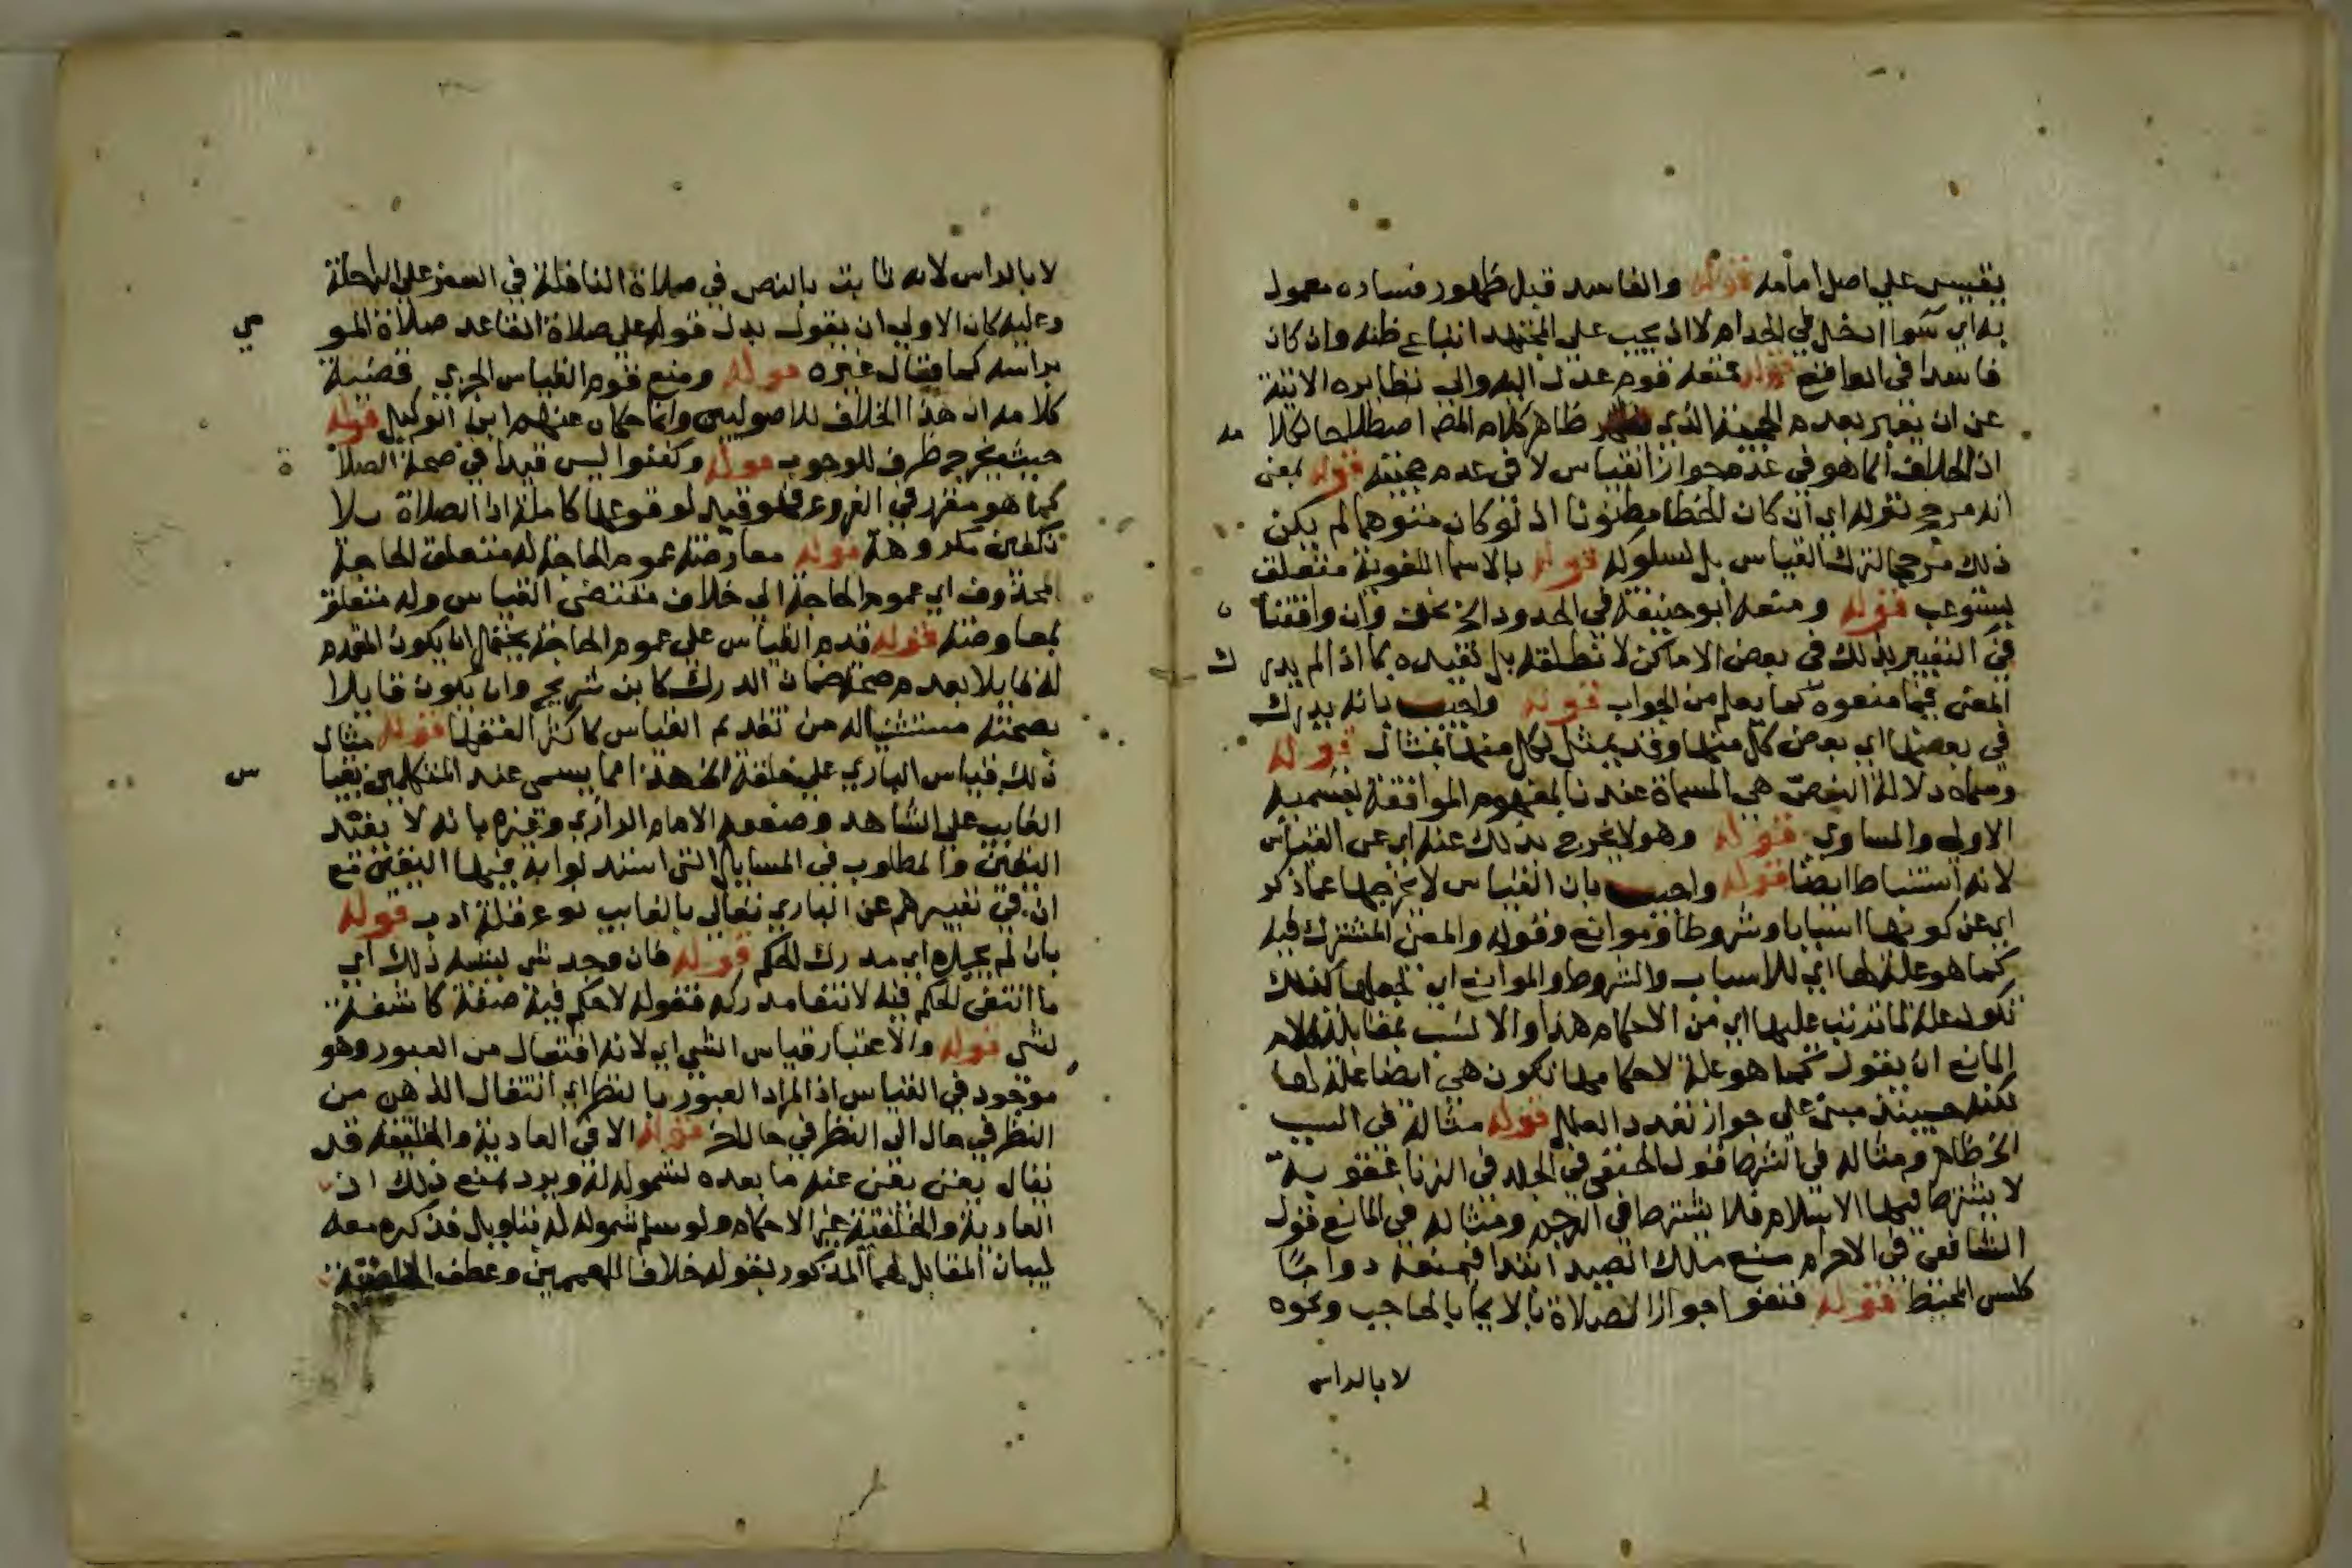 يقيس على اصل امامه قوله والفاسد قبل ظهور فساده معمول
به اي سوا ادخل في الحد ام لا اذ يجب على المجتهد اتباع ظنه وان كان
فاسدا في الواقع قوله فمنعه قوم عدل اليه والى نظايره الاتية
عن ان يعبر بعدم الحجية الذي ظاهر كلام المص اصطلاحا لكلامه
اذ الخلاف انما هو في عدم جواز القياس لا في عدم حجيته قوله بمعنى
انه مرجح لتركه اي ان كان الخطا مظنونا اذ لو كان متوهما لم يكن
ذلك مرجحا لترك القياس بل لسلوكه قوله بالاسما اللغوية متعلق
بيستوعب قوله ومنعه ابو حنيفة في الحدود الخ نحن وان وافقنا
في التعبير بذلك في بعض الاماكن لا نطلقه بل نقيده بما اذا لم يدرك
المعنى فيما منعوه كما يعلم من الجواب قوله واجيب بانه يدرك
في بعضها اي بعض كل منها وقد يمثل لكل منها بمثال قوله
وسماه دلالة النص هي المسماة عندنا بمفهوم الموافقة بقسميه
الاولى والمساوي قوله وهو لا يخرج بذلك عنه اي عن القياس
لانه استنباط ايضا قوله واجيب بان القياس لا يخرجها عما ذكر
اي عن كونها اسبابا وشروطا وموانع وقوله والمعنى المشترك فيه
كما هو علة لها اي للاسباب والشروط والموانع اي لجعلها كذلك
تكون علة لما ترتب عليها اي من الاحكام هذا والانسب بمقابلة كلام
المانع ان يقول كما هو علة لاحكامها تكون هي ايضا علة لها
لكنه حينئذ مبني على جواز تعدد العلل قوله مثاله في السبب
الخ ظاهر ومثاله في الشرط قول الحنفي في الجلد في الزنا عقوبة
لا يشترط فيها الاسلام فلا يشترط في الرجم ومثاله في المانع قول
الشافعي في الاحرام منع ملك الصيد ابتدا فيمنعه دواما
كلبس المخيط قوله فنفوا جواز الصلاة بالايما بالحاجب ونحوه
لا بالراس
لا بالراس لانه ثابت بالنص في صلاة النافلة في السفر على الراحلة
وعليه كان الاولى ان يقول بدل قوله على صلاة القاعد صلاة المومي
براسه كما قال غيره قوله ومنع قوم القياس الجزي قضية
كلامه ان هذا الخلاف للاصوليين وانما حكاه عنهم ابن الوكيل قوله
حيث يخرج ظرف للوجوب قوله وكفنوا ليس قيدا في صحة الصلاة
كما هو مقرر في الفروع فلو قيد لوقوعها كاملة اذ الصلاة بلا
تكفين مكروهة قوله معارضته عموم الحاجة له متعلق الحاجة
محذوف اي عموم الحاجة الى خلاف مقتضى القياس وله متعلق
بمعارضته قوله قدم القياس على عموم الحاجة يحتمل ان يكون المقدم
له قايلا بعدم صحة ضمان الدرك كابن شريج وان يكون قايلا
بصحته مستثنيا له من تقديم القياس كاكثر الفقها قوله مثال
ذلك قياس الباري على خلقه الخ هذا مما يسمى عند المتكلمين بقياس
الغايب على الشاهد وضعفه الامام الرازي وغيره بانه لا يفيد
اليقين والمطلوب في المسايل التي استدلوا به فيها اليقين مع
ان في تعبيرهم عن الباري تعالى بالغايب نوع قلة ادب قوله
بان لم يجده اي مدرك الحكم قوله فان وجد شي يشبه ذلك اي
ما انتفى الحكم فيه لانتفا مدركه فقوله لا حكم فيه صفة كاشفة
لشي قوله والاعتبار قياس الشي اي لانه افتعال من العبور وهو
موجود في القياس اذ المراد العبور بالنظر اي انتقال الذهن من
النظر في حال الى النظر في حال اخر قوله الا في العادية والخلقية قد
يقال يغني عنه ما بعده لشموله له ويرد بمنع ذلك ان
العادية والخلقية غير الاحكام ولو سلم شموله له بتاويل فذكره معه
لبيان المقابل لهما المذكور بقوله خلافا للمعممين وعطف الخلقية